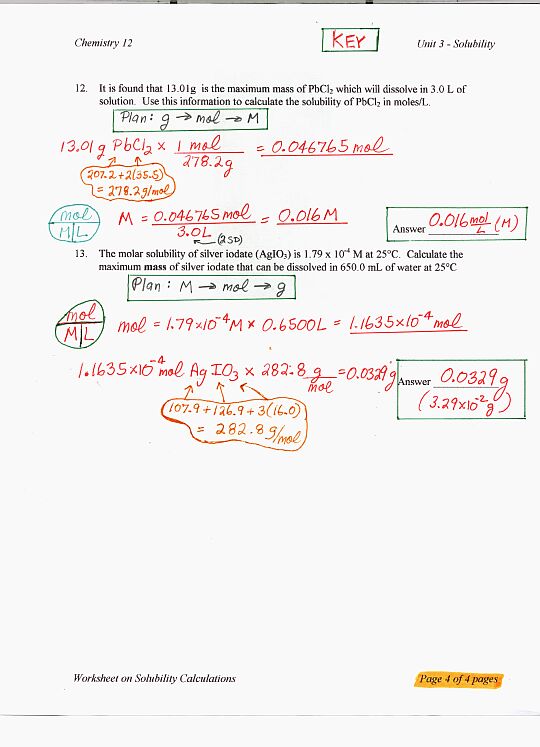 Chemistry 12 KEY Unit 3 - Solubility
12. It is found that 13.01g is the maximum mass of PbCl₂ which will dissolve in 3.0 L of
solution. Use this information to calculate the solubility of PbCl₂ in moles/L.
Plan: g → mol → M
13.01 g PbCl₂ × 1 mol / 278.2g = 0.046765 mol
207.2 + 2(35.5)
= 278.2 g/mol
mol
M L
M = 0.046765 mol / 3.0 L = 0.016 M
(2SD)
Answer 0.016 mol/L (M)
13. The molar solubility of silver iodate (AgIO₃) is 1.79 x 10⁻⁴ M at 25°C. Calculate the
maximum mass of silver iodate that can be dissolved in 650.0 mL of water at 25°C
Plan: M → mol → g
mol
M L
mol = 1.79×10⁻⁴ M × 0.6500L = 1.1635×10⁻⁴ mol
1.1635×10⁻⁴ mol AgIO₃ × 282.8 g/mol = 0.0329 g
Answer 0.0329 g
(3.29×10⁻² g)
107.9 + 126.9 + 3(16.0)
= 282.8 g/mol
Worksheet on Solubility Calculations Page 4 of 4 pages